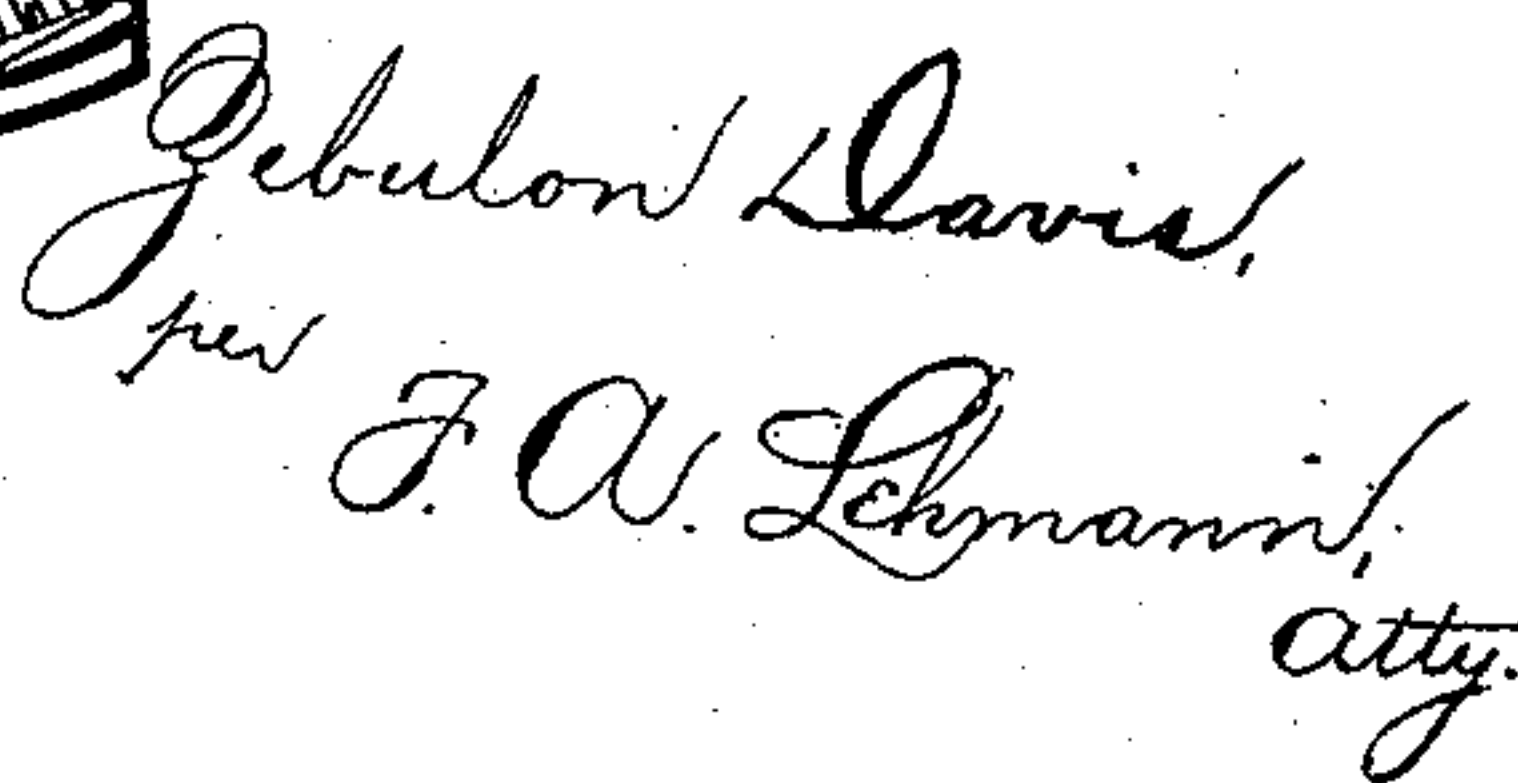 Zebulon Davis,
per
F. A. Lehmann,
Atty.